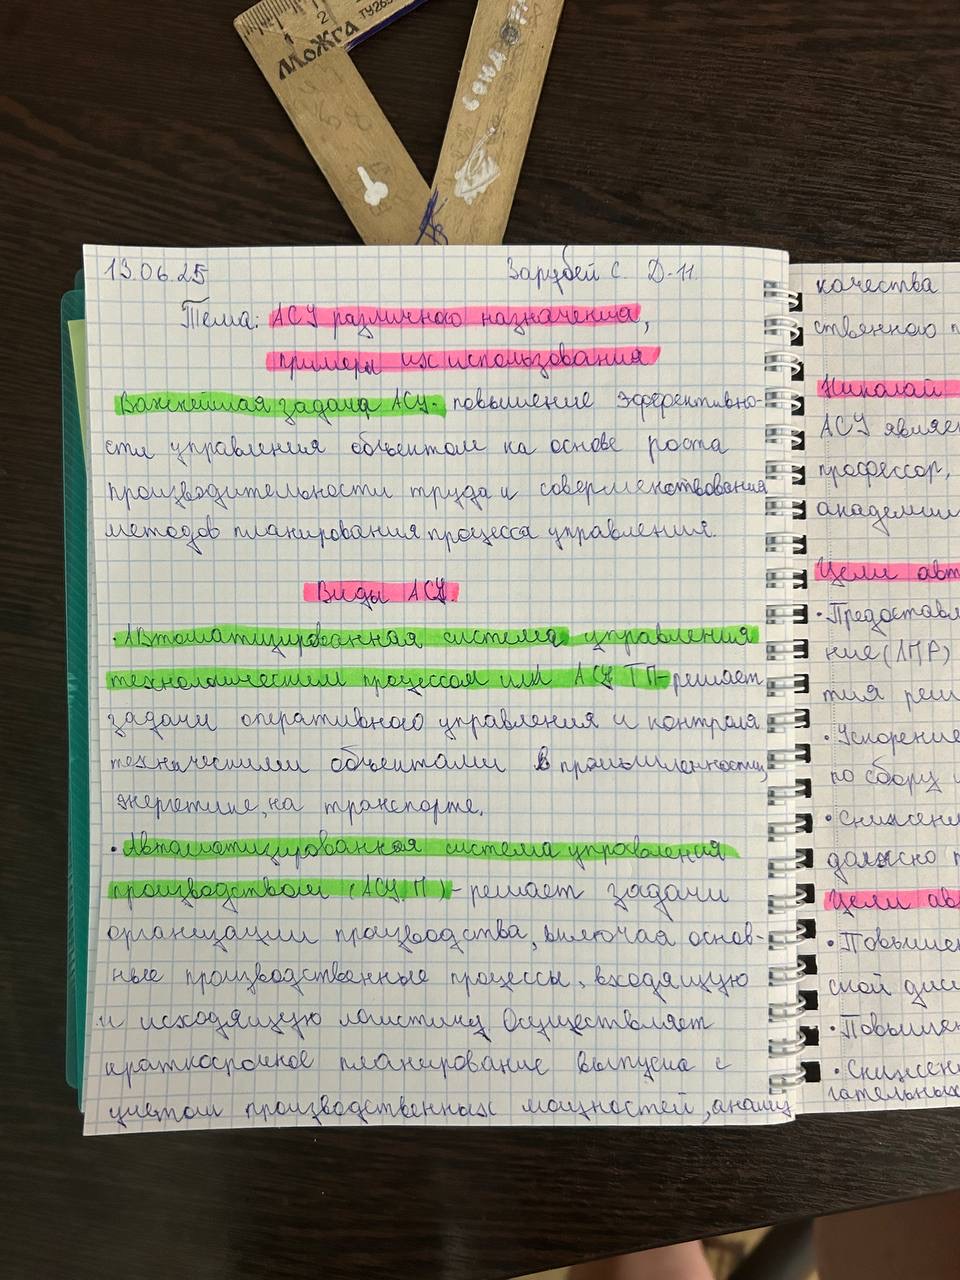 МОЖГА
ТУ
1 2
13.06.25 Зарубей С. Д-11
Тема: АСУ различного назначения,
примеры их использования
Важнейшая задача АСУ- повышение эффективно-
сти управления объектом на основе роста
производительности труда и совершенствования
методов планирования процесса управления.
Виды АСУ.
·Автоматизированная система управления
технологическим процессом или АСУ ТП-решает
задачи оперативного управления и контроля
техническими объектами в промышленности,
энергетике, на транспорте.
·Автоматизированная система управления
производством (АСУ П)-решает задачи
организации производства, включая основ-
ные производственные процессы, входящую
и исходящую логистику. Осуществляет
краткосрочное планирование выпуска с
учётом производственных мощностей, анализ
качества
ственного п
Николай
АСУ являе
профессор,
академии
Цели авт
·Предоставл
ние (ЛПР)
тия реш
·Ускорение
по сбору
·Снижени
должно
Цели ав
·Повышен
ской дис
·Повышен
·Снижен
гательных